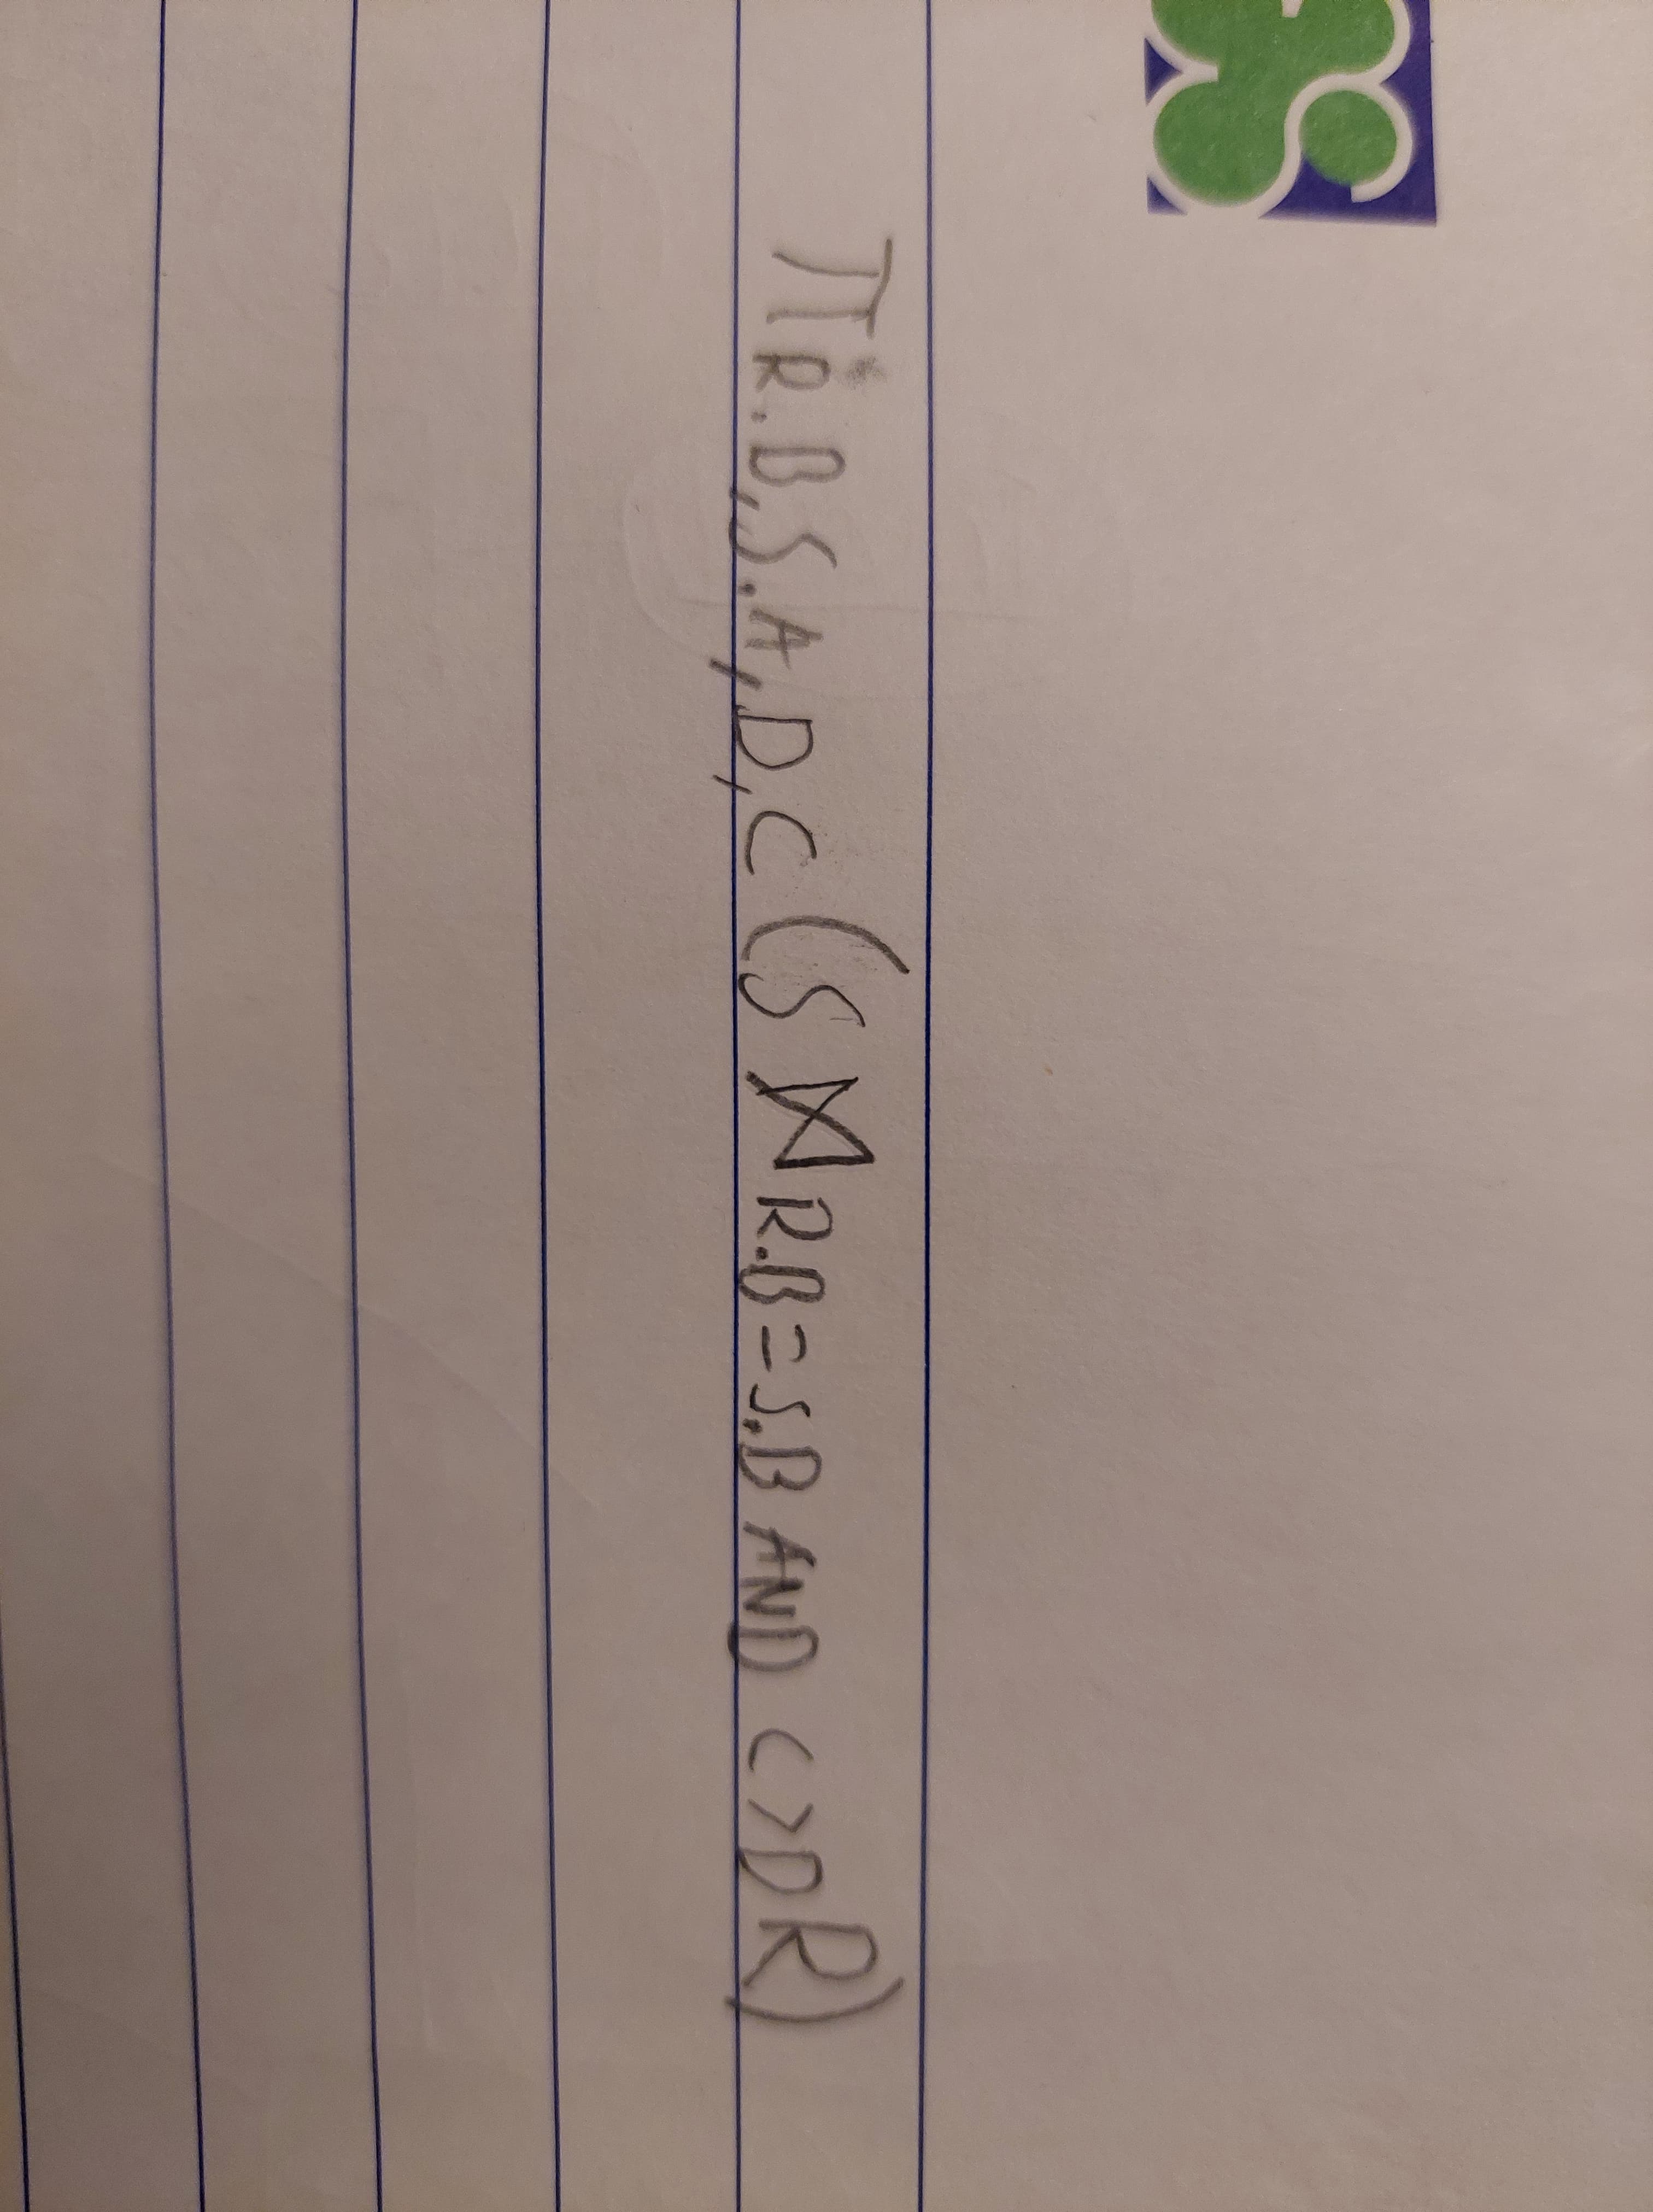 π R.B,S.A,D,C (S ⋈ R.B=S.B AND C>D R)